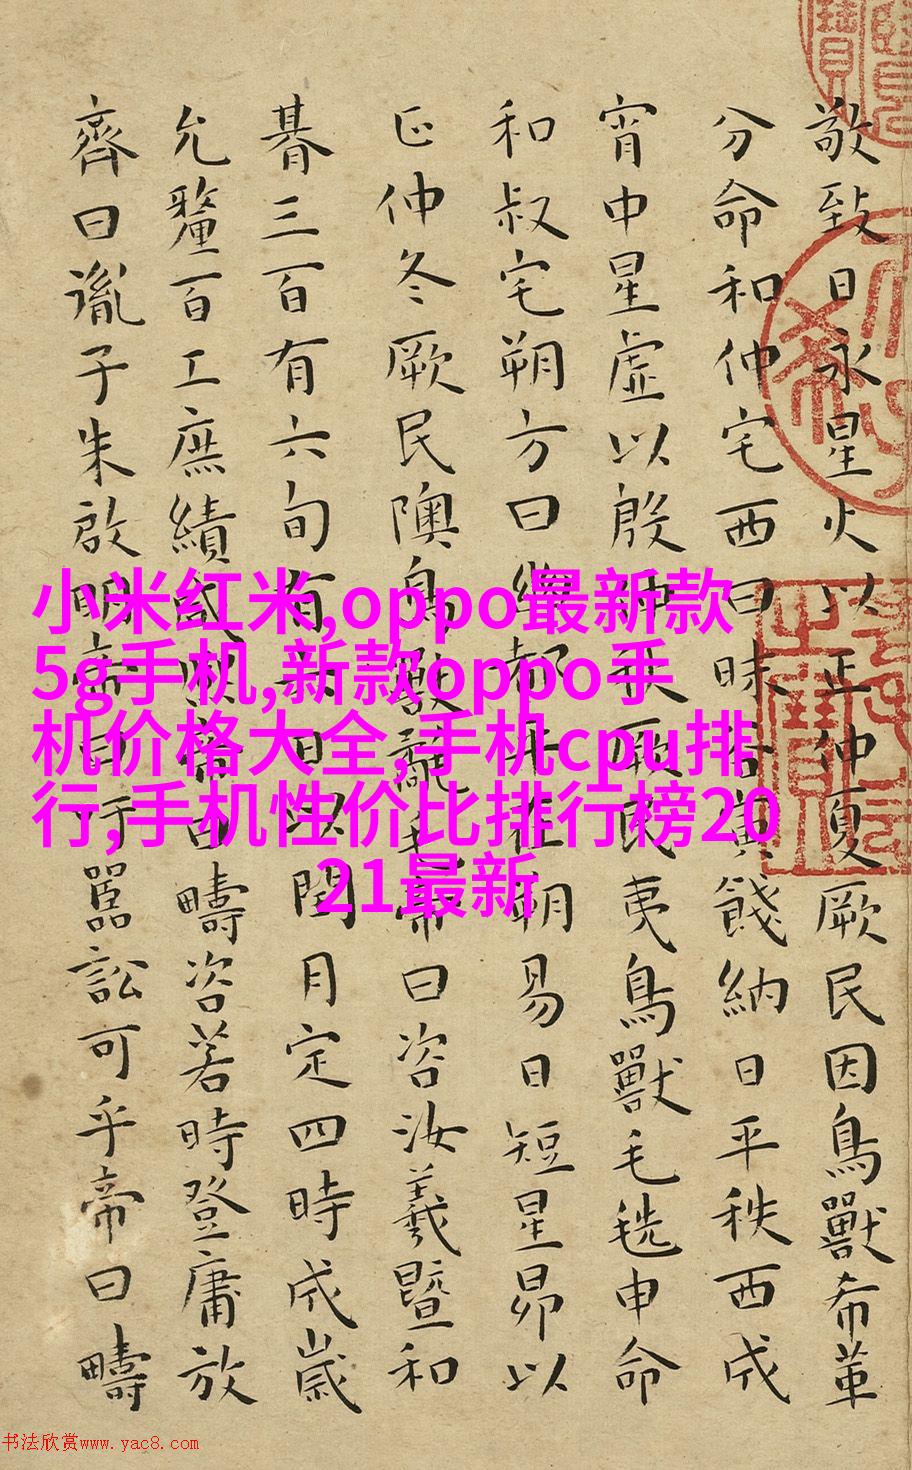 敬致日永星火以正仲夏厥民因鳥獸希革
分命和仲宅西曰昧谷寅餞納日平秩西成
宵中星虛以殷仲秋厥民夷鳥獸毛毨申命
和叔宅朔方曰幽都平在朔易日短星昴以
正仲冬厥民隩鳥獸氄毛帝曰咨汝羲暨和
朞三百有六旬有六日以閏月定四時成歲
允釐百工庶績咸熙帝曰疇咨若時登庸放
齊曰胤子朱啟明帝曰吁嚚訟可乎帝曰疇
小米红米,oppo最新款
5g手机,新款oppo手
机价格大全,手机cpu排
行,手机性价比排行榜20
21最新
书法欣赏www.yac8.com